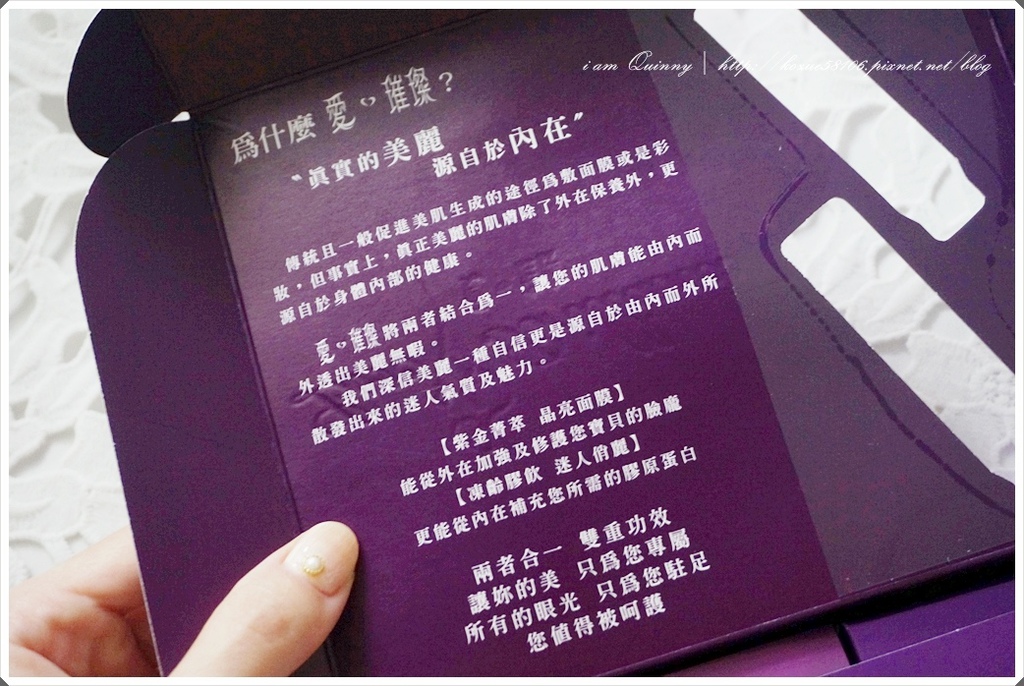 i am Quinny | http://kozue58106.pixnet.net/blog
為什麼 愛心 璀璨？
〝真實的美麗
源自於內在〞
傳統且一般促進美肌生成的途徑為敷面膜或是彩
妝，但事實上，真正美麗的肌膚除了外在保養外，更
源自於身體內部的健康。
愛心璀璨將兩者結合為一，讓您的肌膚能由內而
外透出美麗無暇。
我們深信美麗一種自信更是源自於由內而外所
散發出來的迷人氣質及魅力。
【紫金菁萃 晶亮面膜】
能從外在加強及修護您寶貝的臉龐
【凍齡膠飲 迷人俏麗】
更能從內在補充您所需的膠原蛋白
兩者合一 雙重功效
讓妳的美 只為您專屬
所有的眼光 只為您駐足
您值得被呵護